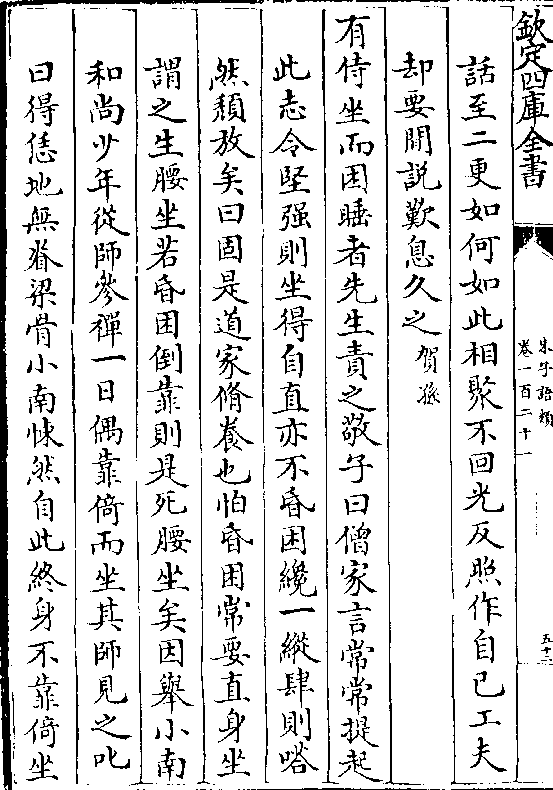 欽定四庫全書
朱子語類
卷一百二十一
五十三
話至二更如何如此相聚不回光反照作自已工夫
却要閒説歎息久之賀孫
有侍坐而困睡者先生責之敬子曰僧家言常常提起
此志令堅强則坐得自直亦不昏困纔一縱肆則嗒
然頹放矣曰固是道家脩養也怕昏困常要直身坐
謂之生腰坐若昏困倒靠則是死腰坐矣因舉小南
和尚少年從師參禪一日偶靠倚而坐其師見之叱
曰得恁地無脊梁骨小南悚然自此終身不靠倚坐